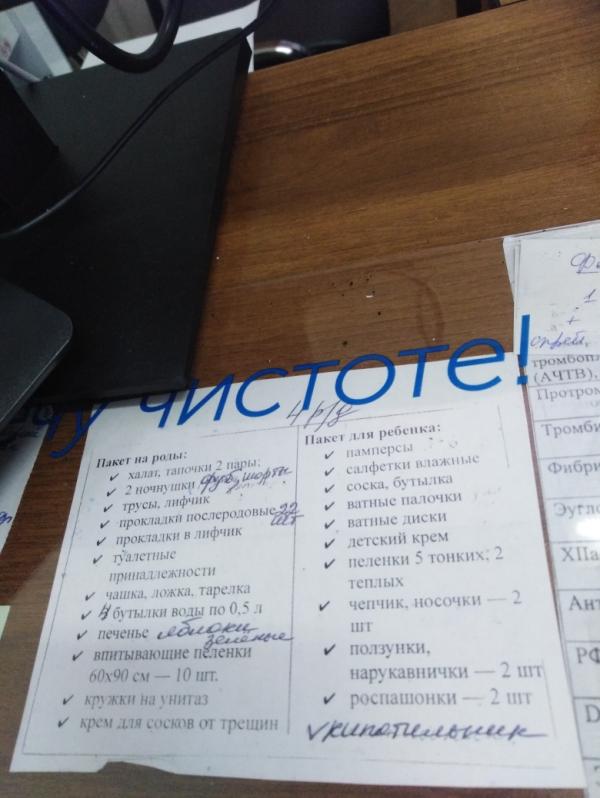 чу чистоте!
4 р/д
Пакет на роды:
✓ халат, тапочки 2 пары;
✓ 2 ночнушки футб, шорты
✓ трусы, лифчик
✓ прокладки послеродовые 22 шт
✓ прокладки в лифчик
✓ туалетные
принадлежности
✓ чашка, ложка, тарелка
✓ 4 бутылки воды по 0,5 л
✓ печенье яблоки зелёные
✓ впитывающие пеленки
60х90 см — 10 шт.
✓ кружки на унитаз
✓ крем для сосков от трещин
Пакет для ребенка:
✓ памперсы
✓ салфетки влажные
✓ соска, бутылка
✓ ватные палочки
✓ ватные диски
✓ детский крем
✓ пеленки 5 тонких; 2
теплых
✓ чепчик, носочки — 2
шт
✓ ползунки,
нарукавнички — 2 шт
✓ роспашонки — 2 шт
✓ кипятильник
1
+
спрей,
тромбопл
(АЧТВ),
Протром
Тромби
Фибри
Эугло
XIIа
Ант
РФ
D